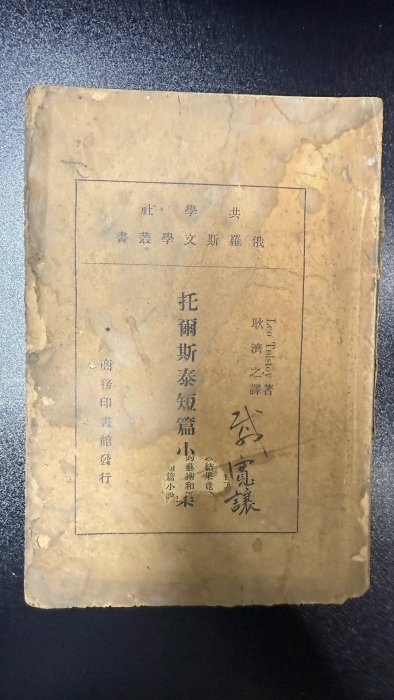 共學社
俄羅斯文學叢書
Leo Tolstoy 著
耿濟之譯
托爾斯泰短篇小集
結果竟
的藝術和
短篇小說
寬讓
商務印書館發行